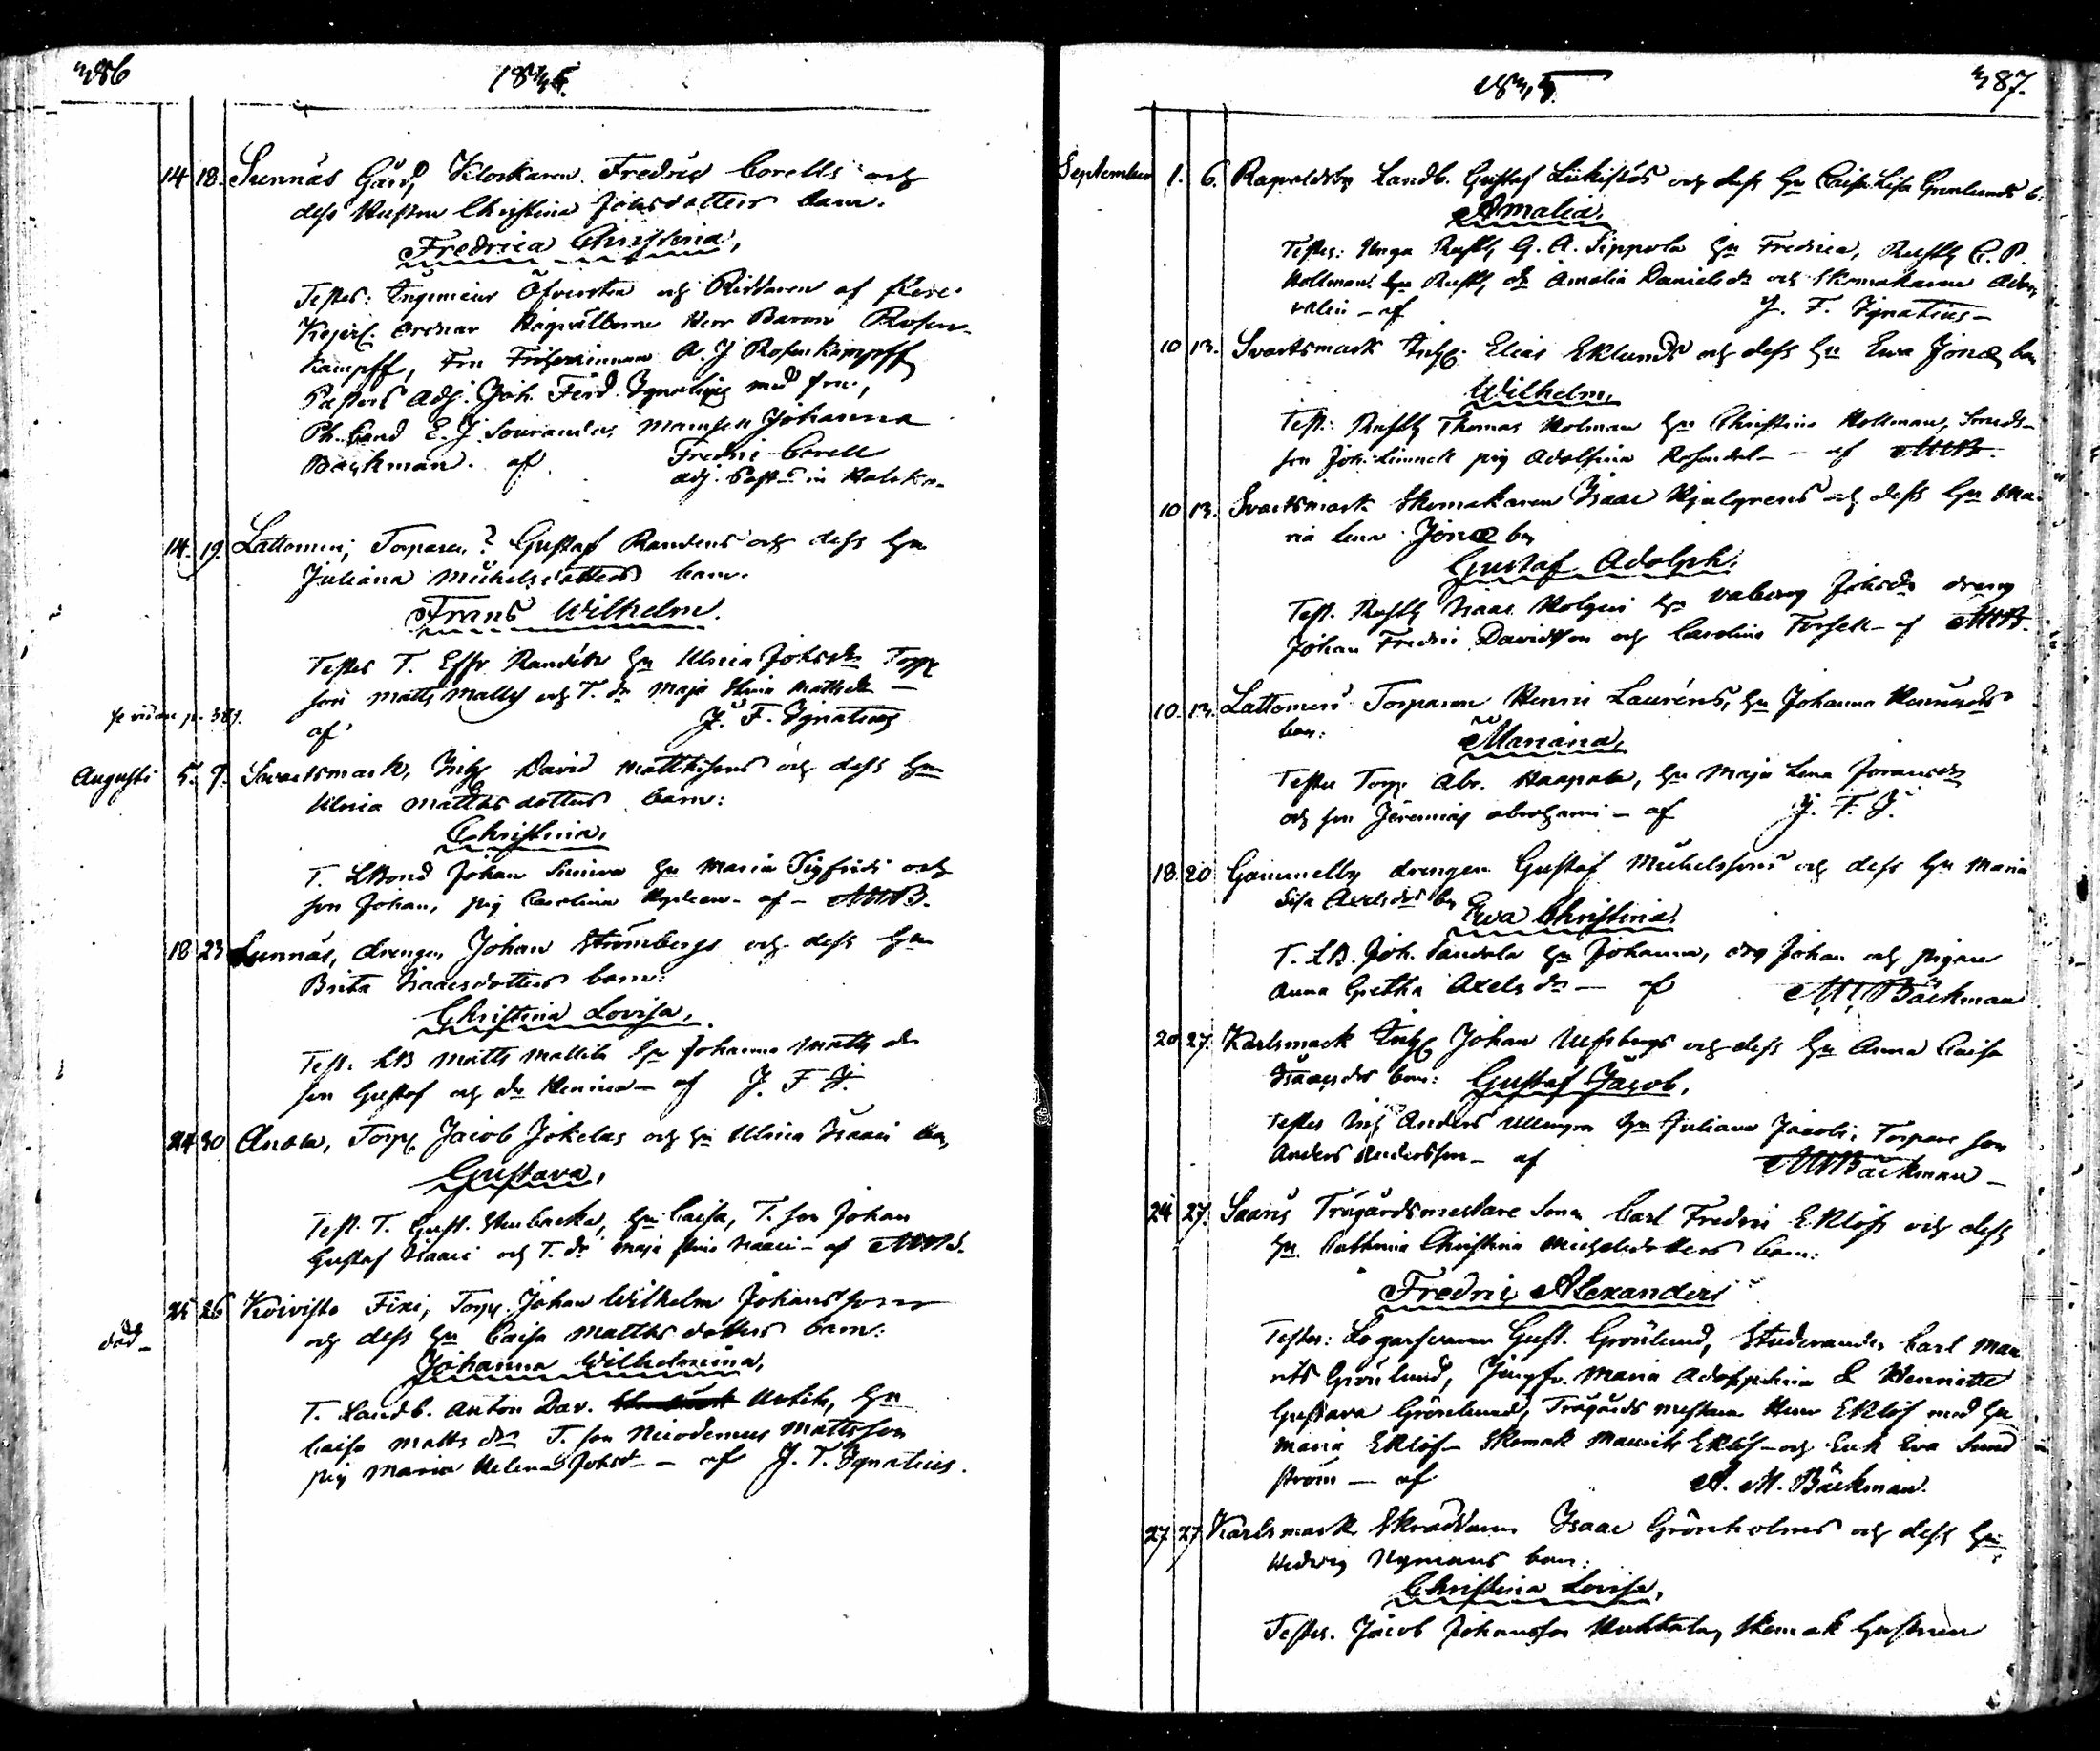 386
1835.
14 18. Sunnäs Gård, Klockaren Fredric Corells och
dess Hustru Christina Johsdotters barn.
Fredrica Christina,
Testes: Ingenieur Öfversten och Riddaren af flere
Kejserl. Ordnar Högvälborne Herr Baron Rosen-
kampff, Fru Friherrinnan A. J Rosenkampff
Pastors Adj. Joh. Ferd. Ignatius med fru,
Ph. Cand E. J. Sourander, Mamsell Johanna
Backman. af Fredric Corell
adj. Past. in
14. 19. Lattomeri, Torparen? Gustaf Randens och dess Hu
Juliana Michelsdotters barn.
Frans Wilhelm.
Testes T. Effr Randén Hu Ulrica Johsdr Torp
son Matts Matts och T. dr Maja Stina Mattsdr —
af J. F. Ignatius
p. 387.
Augusti 5. 9. Svartsmark, Inhs David Matthssons och dess Hu
Ulrica Matthsdotters barn:
Christina,
T. LBond Johan Hu Maria Sigfrids och
son Johan, pig Carolina af — AMB.
18 23 Sunnäs, drengen Johan Strömbergs och dess Hu
Brita Isaacsdotters barn:
Christina Lovisa,
Test. LB Matts Mattila Hu Johanna Matts dr
son Gustaf och dr Henrica — af J. F. J.
24 30 Anola, Torp Jacob Jokelas och Hu Ulrica Isaaci barn
Gustava,
Test. T. Gust. Stenbacka, Hu Caisa, T. son Johan
Gustaf Isaaci och T. dr Maja Stina Isaaci — af AMB.
25 26 Koivisto Fixi, Torp. Johan Wilhelm Johanssons
och dess Hu Caisa Matthsdotters barn:
död —
Johanna Wilhelmina,
T. Landb. Anton Dav. Hu
Caisa Matts dr T. son Nicodemus Mattsson
pig Maria Helena Johsdr — af J. F. Ignatius.
1835.
387.
September 1. 6. Ragvaldsby Landb. Gustaf och dess Hu Caisa Lisa Grönlunds b.
Amalia,
Testes: Unga Rusth G. A. Sippola Hu Fredrica, Rusth C. P.
Hollman, Hu Rusth dr Amalia Danielsdr och Skomakaren
af J. F. Ignatius —
10 13. Svartsmark Inhs. Elias Eklunds och dess Hu Ewa Jonæ barn
Wilhelm,
Test: Rusth Thomas Holman Hu Christina Hollman, Smeds-
son Joh: Linnell pig Adolfina — af AMB.
10 13. Svartsmark Skomakaren Isaac Hjulgrens och dess Hu Ma-
ria Lena Jonæ barn
Gustaf Adolph.
Test. Rusth Isaac Hu Valborg Johsdr dreng
Johan Fredric Davidsson och Carolina Forsell — af AMB.
10. 13. Lattomeri Torparen Henric Lauréns, Hu Johanna
barn:
Mariana,
Testes Torp. Abr. Haapala, Hu Maja Lena
och son Jeremias Abrahami — af J. F. J.
18. 20 Gammelby drengen Gustaf Michelssons och dess Hu Maria
Lisa Axelsdrs barn
Ewa Christina.
T. LB. Joh. Sandola Hu Johanna, drg Johan och pigan
Anna Gretha Axelsdr — af AM Bäckman
20 27. Karlsmark Inhs Johan Ulfsbergs och dess Hu Anna Caisa
Isaacsdrs barn: Gustaf Jacob,
Testes Inhs Anders Hu Juliana Jacobi, Torpare son
Anders Andersson — af AMBäckman —
24 27. Saaris Trägårdsmestare Sonen Carl Fredric Eklöfs och dess
Hu Cathrina Christina Michelsdotters barn:
Fredric Alexander
Testes: Gust. Grönlund, Studerande Carl Mau-
rits Grönlund, Jungfr. Maria Adolphina & Henriette
Gustava Grönlund, Trägårdsmestare Herr Eklöf med Hu
Maria Eklöf — Skomak Maurits Eklöf — och Enk Eva Sund
ström — af A. M. Bäckman.
27 27 Karlsmark Skräddaren Isaac Grönholms och dess Hu
Hedvig Nymans barn:
Christina Lovisa,
Testes. Jacob Johansson Skomak